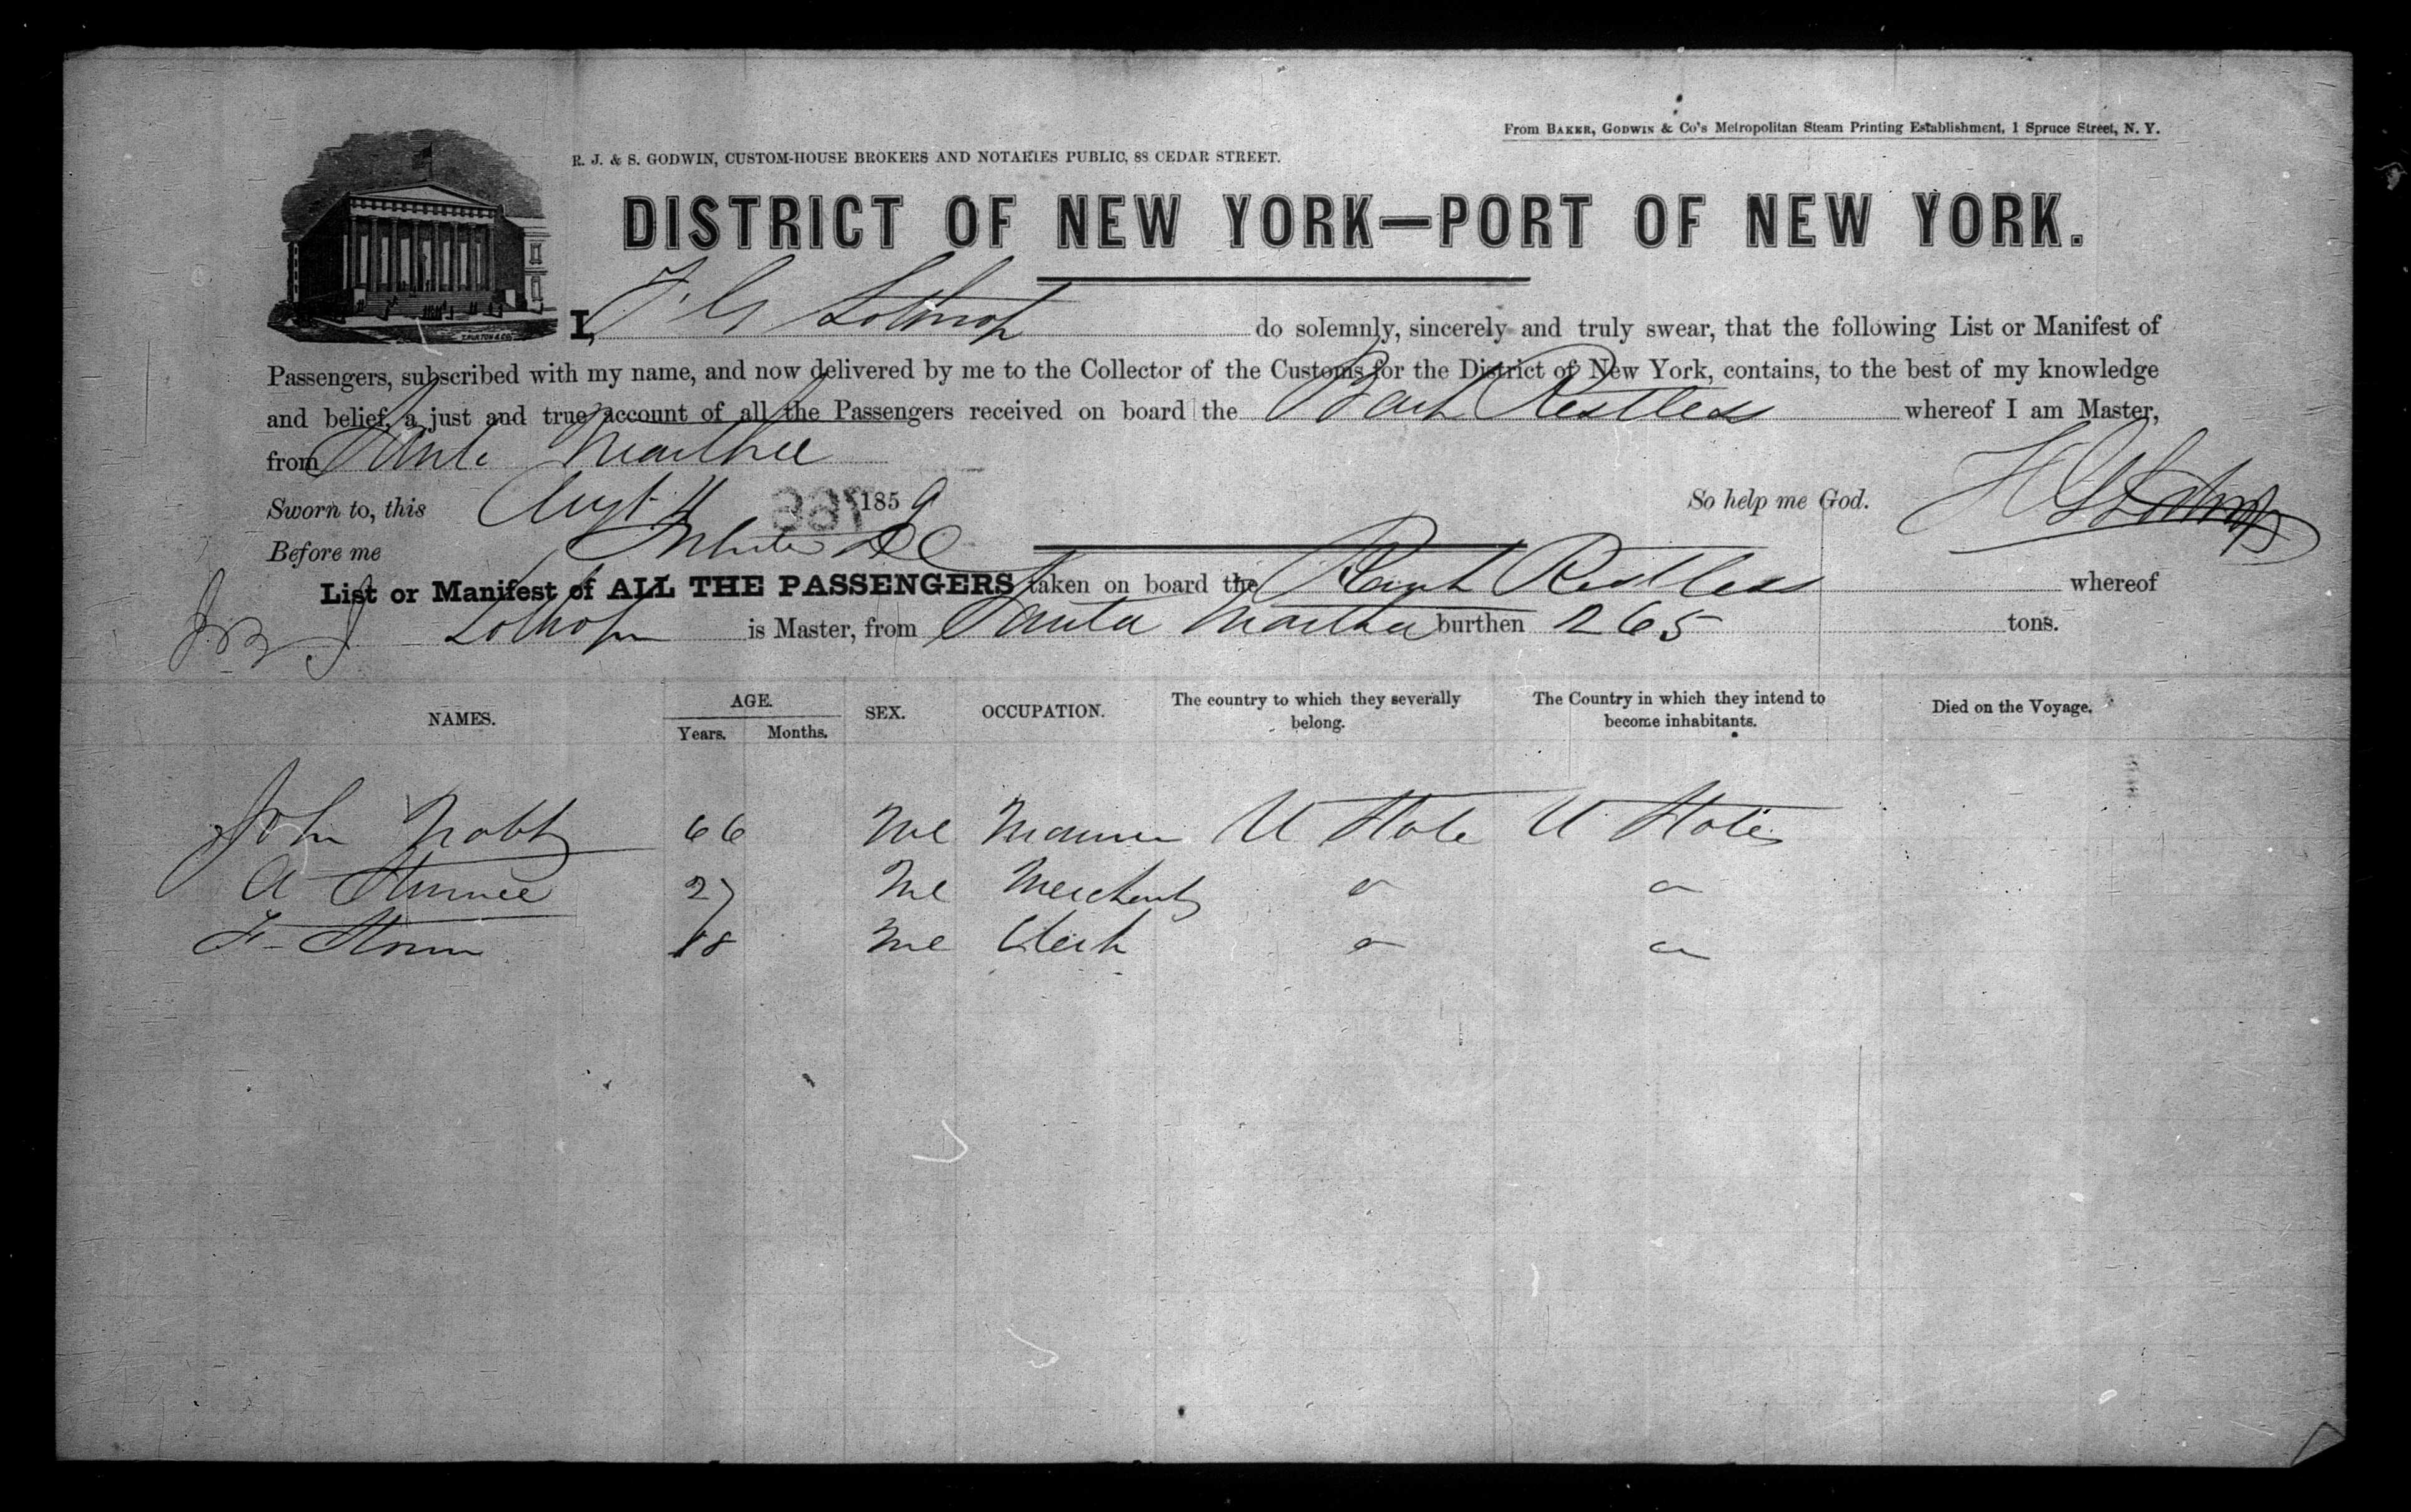 From BAKER, GODWIN & Co's Metropolitan Steam Printing Establishment, 1 Spruce Street, N. Y.
R. J. & S. GODWIN, CUSTOM-HOUSE BROKERS AND NOTARIES PUBLIC, 88 CEDAR STREET.
DISTRICT OF NEW YORK—PORT OF NEW YORK.
I, Lothrop do solemnly, sincerely and truly swear, that the following List or Manifest of
Passengers, subscribed with my name, and now delivered by me to the Collector of the Customs for the District of New York, contains, to the best of my knowledge
and belief, a just and true account of all the Passengers received on board the Bark Restless whereof I am Master,
from Santa Martha
Sworn to, this Augt 4 1859 So help me God.
Before me
List or Manifest of ALL THE PASSENGERS taken on board the Bark Restless whereof
Lothrop is Master, from Santa Martha burthen 265 tons.
NAMES. AGE. Years. Months. SEX. OCCUPATION. The country to which they severally belong. The Country in which they intend to become inhabitants. Died on the Voyage.
John 66 Me Mariner U State U States
A 27 Me Merchant
F 18 Me Clerk